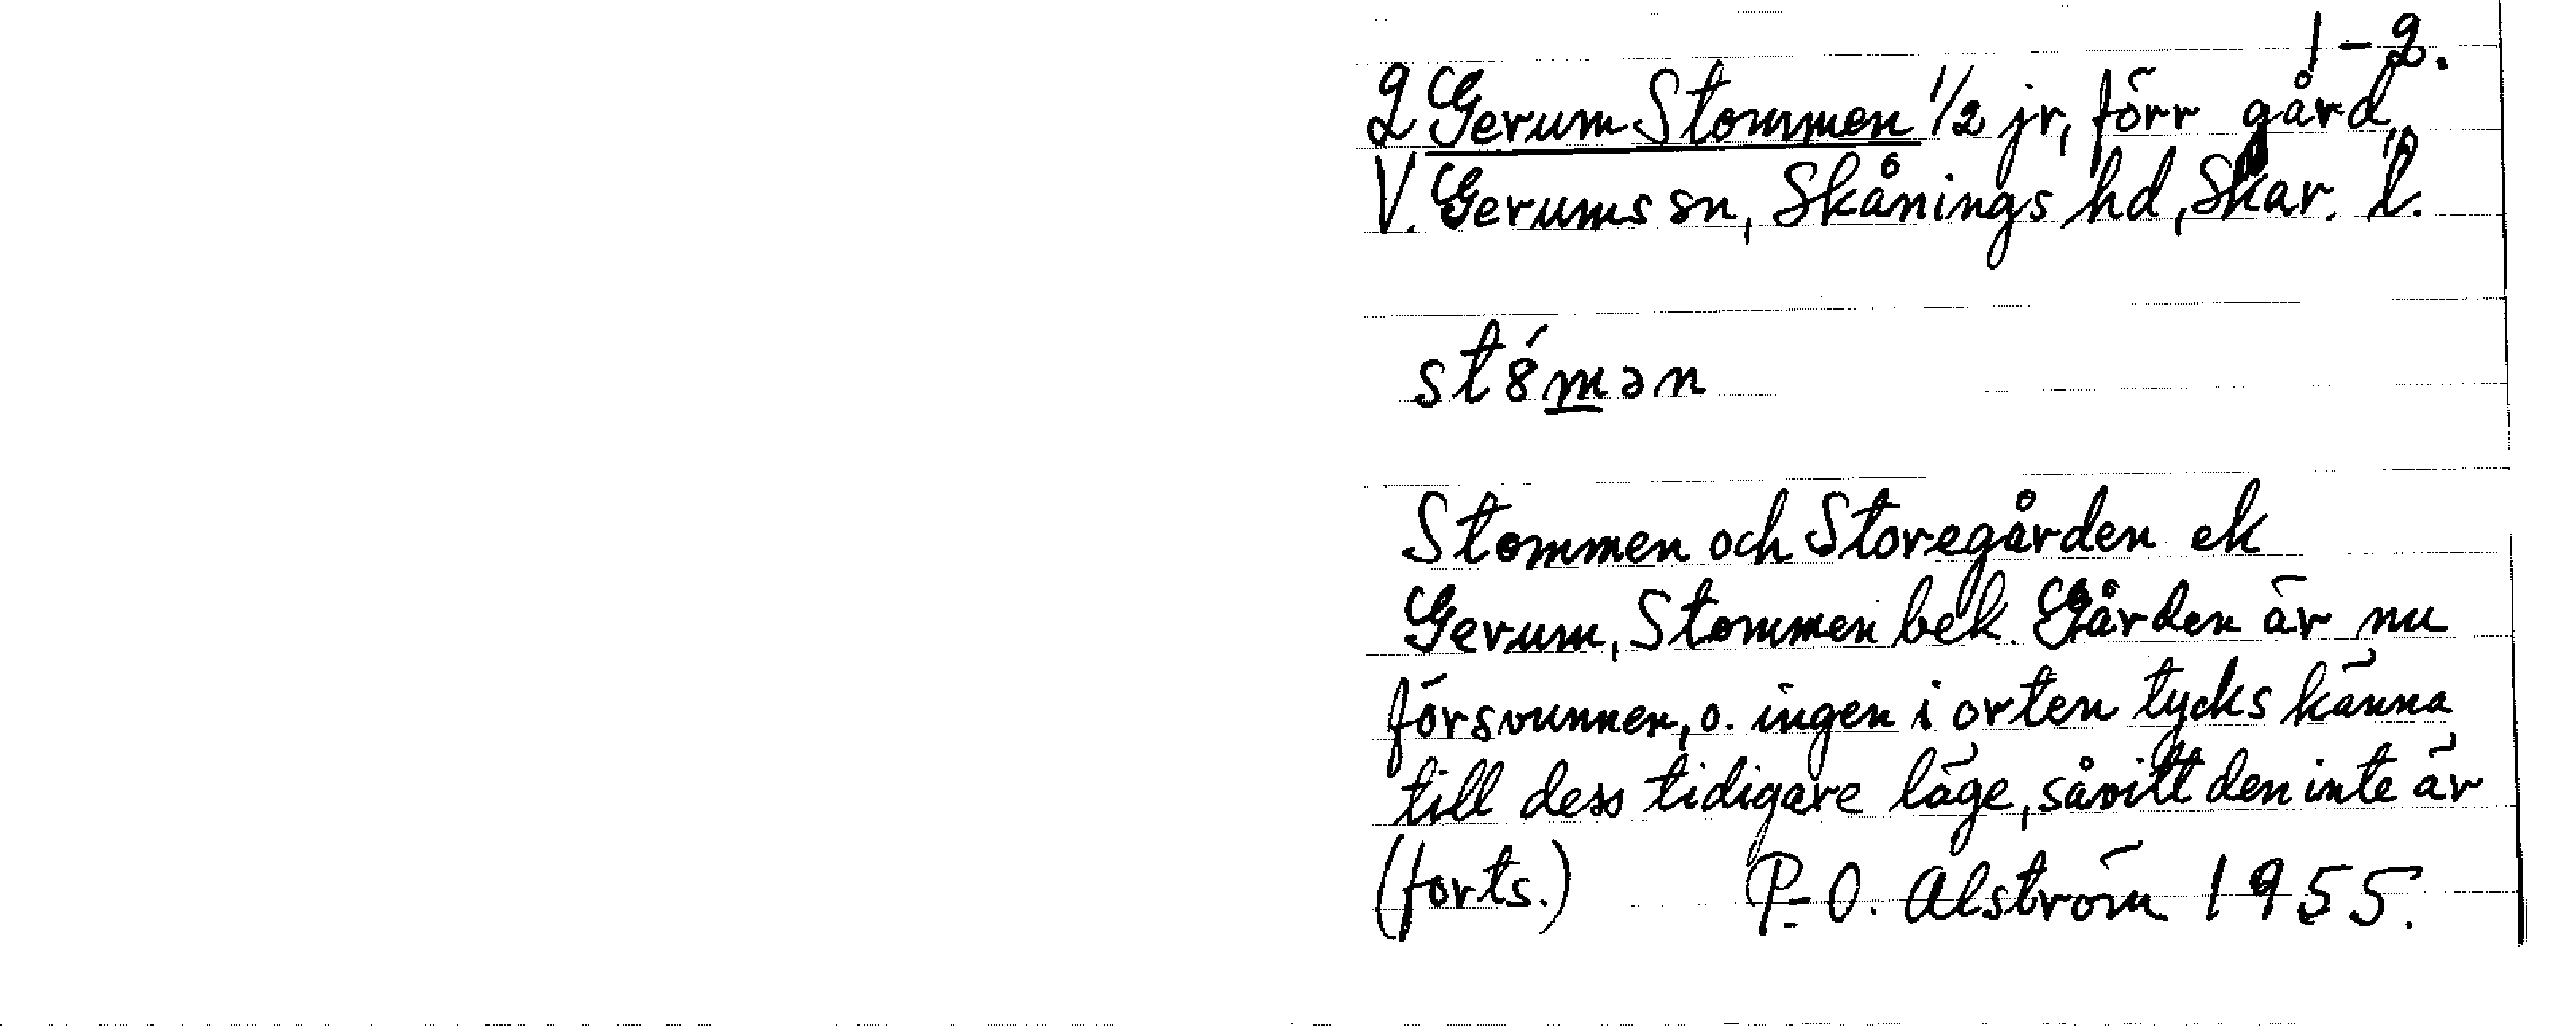 1-2.
2 Gerum Stommen 1/2 jr, förr gård
V. Gerums sn, Skånings hd, Skar. l.
st8́mən
Stommen och Storegården ek
Gerum, Stommen bek. Gården är nu
försvunnen, o. ingen i orten tycks känna
till dess tidigare läge, såvitt den inte är
(forts.) P-O. Alström 1955.